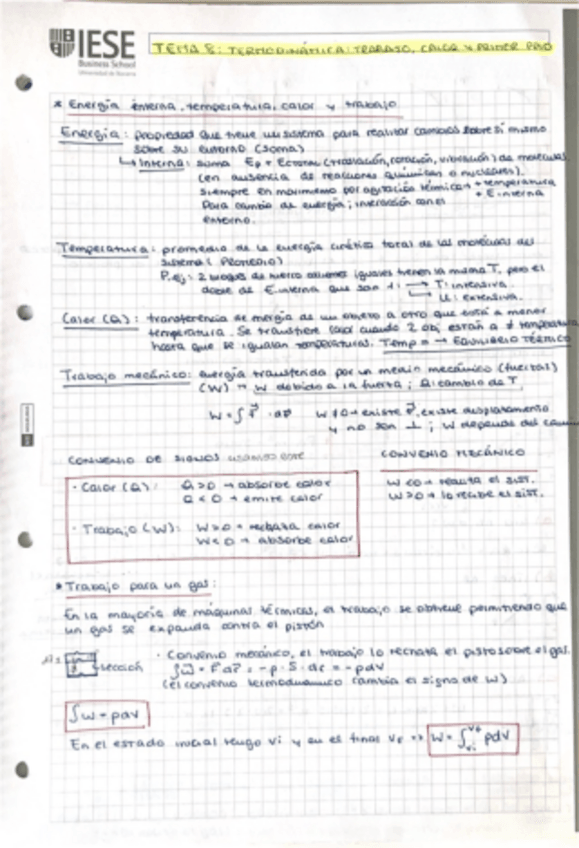 IESE
Business School
Universidad de Navarra
TEMA 8: TERMODINÁMICA: TRABAJO, CALOR Y PRIMER PPIO
* Energía interna, temperatura, calor y trabajo
Energía: propiedad que tiene un sistema para realizar cambios sobre sí mismo
sobre su entorno (soma)
↳ Interna: suma Ep + Ecтotal (traslación, rotación, vibración) de moléculas
(en ausencia de reacciones químicas o nucleares).
siempre en movimiento por agitación térmica → + temperatura
+ E. interna
Para cambio de energía; interacción con el
entorno.
Temperatura: promedio de la energía cinética total de las moléculas del
sistema (PROMEDIO)
P. ej: 2 bloques de hierro iguales tienen la misma T, pero el
doble de E. interna que → T: intensiva.
U: extensiva.
Calor (Q): transferencia de energía de un objeto a otro que está a menor
temperatura. Se transfiere calor cuando 2 obj están a ≠ temperatura
hasta que se igualan temperaturas. Temp = → EQUILIBRIO TÉRMICO
Trabajo mecánico: energía transferida por un medio mecánico (fuerzas)
(W) → W debido a la fuerza; Q: cambio de T
W = ∫ F · dr W ≠ 0 → existe F, existe desplazamiento
y no son ⊥; W depende del camino
CONVENIO DE SIGNOS USAMOS ESTE
CONVENIO MECÁNICO
· Calor (Q): Q > 0 → absorbe calor
Q < 0 → emite calor
W < 0 → realiza el sist.
W > 0 → lo recibe el sist.
· Trabajo (W): W > 0 → calor
W < 0 → absorbe calor
* Trabajo para un gas:
En la mayoría de máquinas térmicas, el trabajo se obtiene permitiendo que
un gas se expanda contra el pistón
sección
· Convenio mecánico, el trabajo lo realiza el pistó sobre el gas.
∫W = F dr = -p · S · dr = -pdV
(el convenio termodinámico cambia el signo de W)
∫W = pdV
En el estado inicial tengo Vi y en el final VF => W = ∫ pdV